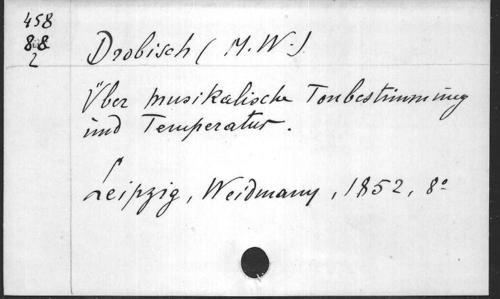 458
88
2
Drobisch (M. W.)
Über musikalische Tonbestimmung
und Temperatur.
Leipzig, Weidmann, 1852, 8°